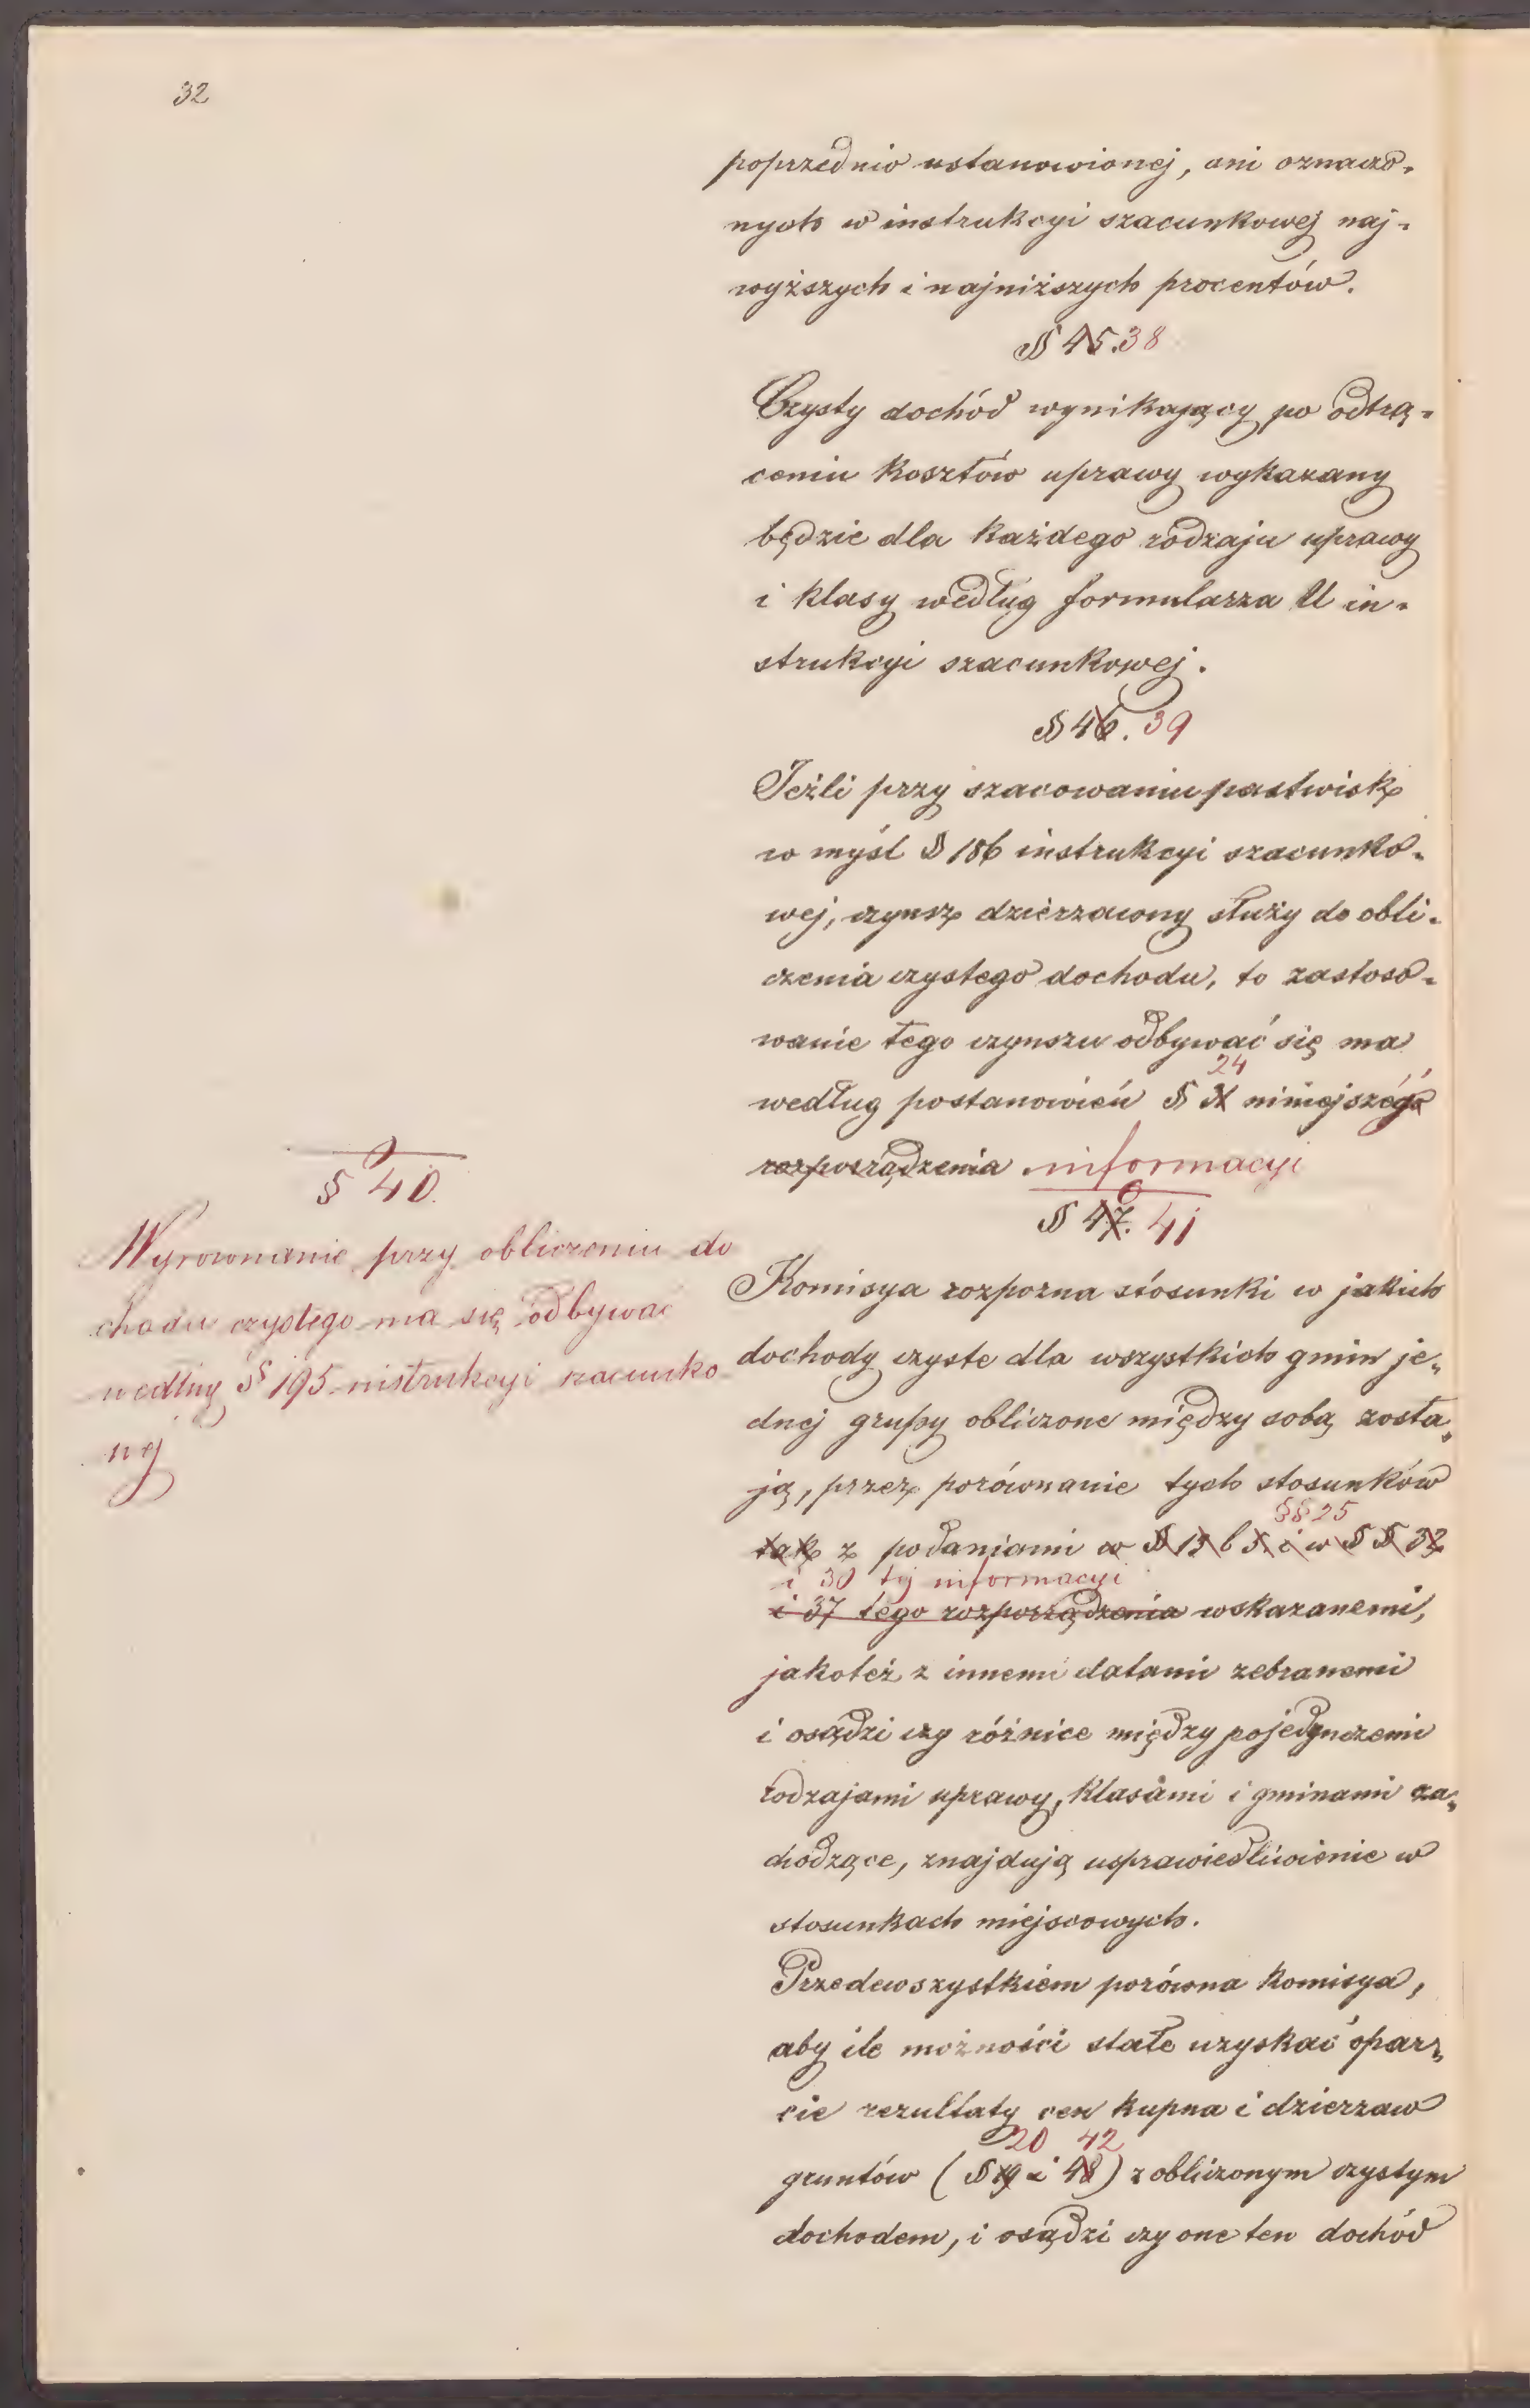 32
poprzednio ustanowionej, ani oznaczo-
nych w instrukcyi szacunkowej naj-
wyższych i najniższych procentów.
§ 45. 38
Czysty dochód wynikający po odtrą-
ceniu kosztów uprawy wykazany
będzie dla każdego rodzaju uprawy
i klasy według formularza U in-
strukcyi szacunkowej.
§ 46. 39
Jeżli przy szacowaniu pastwisk
w myśl § 186 instrukcyi szacunko-
wej, czynsz dzierzawny służy do obli-
czenia czystego dochodu, to zastoso-
wanie tego czynszu odbywać się ma
24
według postanowień § niniejszego
rozporządzenia informacyi
§ 40.
Wyrownanie przy obliczeniu do
chodu czystego ma się odbywać
według § 195 instrukcyi szacunko
wej
§ 47. 41
Komisya rozpozna stósunki w jakich
dochody czyste dla wszystkich gmin je-
dnej grupy obliczone między sobą zosta-
ją, przez porównanie tych stosunków
§§ 25
tak z podaniami w § 13 b 5. i w § § 32
i 30 tej informacyi
i 37 tego rozporządzenia wskazanemi,
jakoteż z innemi datami zebranemi
i osądzi czy różnice między pojedynczemi
rodzajami uprawy, klasami i gminami za-
chodzące, znajdują usprawiedliwienie w
stosunkach miejscowych.
Przedewszystkiem porówna komisya,
aby ile możności stałe uzyskać opar-
cie rezultaty cen kupna i dzierzaw
20 42
gruntów (§ 19 i 48) z obliczonym czystym
dochodem, i osądzi czy one ten dochód